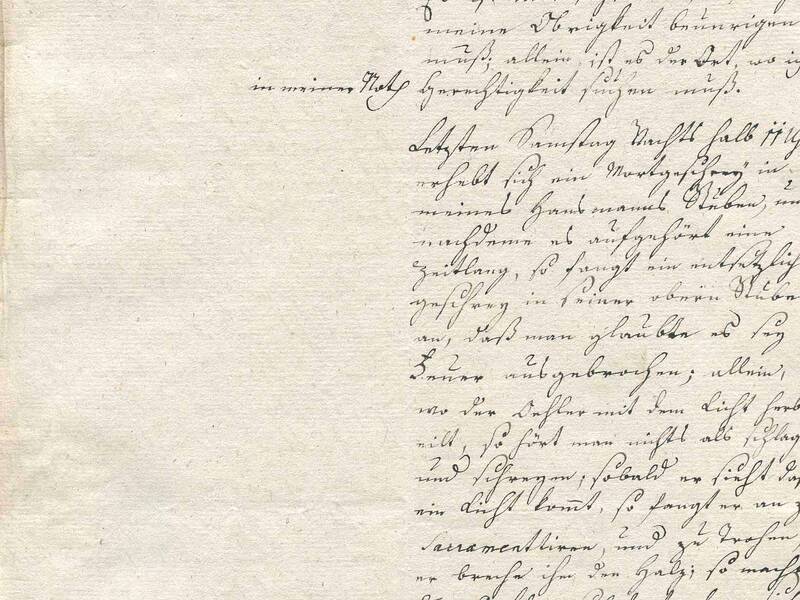 meine Obrigkeit beunrigen
muß; allein ist es der Ort, wo ich
in meiner Noth Gerechtigkeit suchen muß.
Letzten Samstag Nachts halb 11 U
erhebt sich ein Mortgeschrey in
meines Hausmanns Stuben, un
nachdeme es aufgehört eine
Zeitlang, so fangt ein entsetzlich
geschrey in seiner obern Stube
an, daß man glaubte es sey
Feuer ausgebrochen; allein,
wo der Oehler mit dem Licht herb
eilt, so hört man nichts als schlag
und schreyen; sobald er sieht das
ein Licht kommt, so fangt er an z
Sacramenttiren, und zu Trohen,
er breche ihm den Halz; so mach